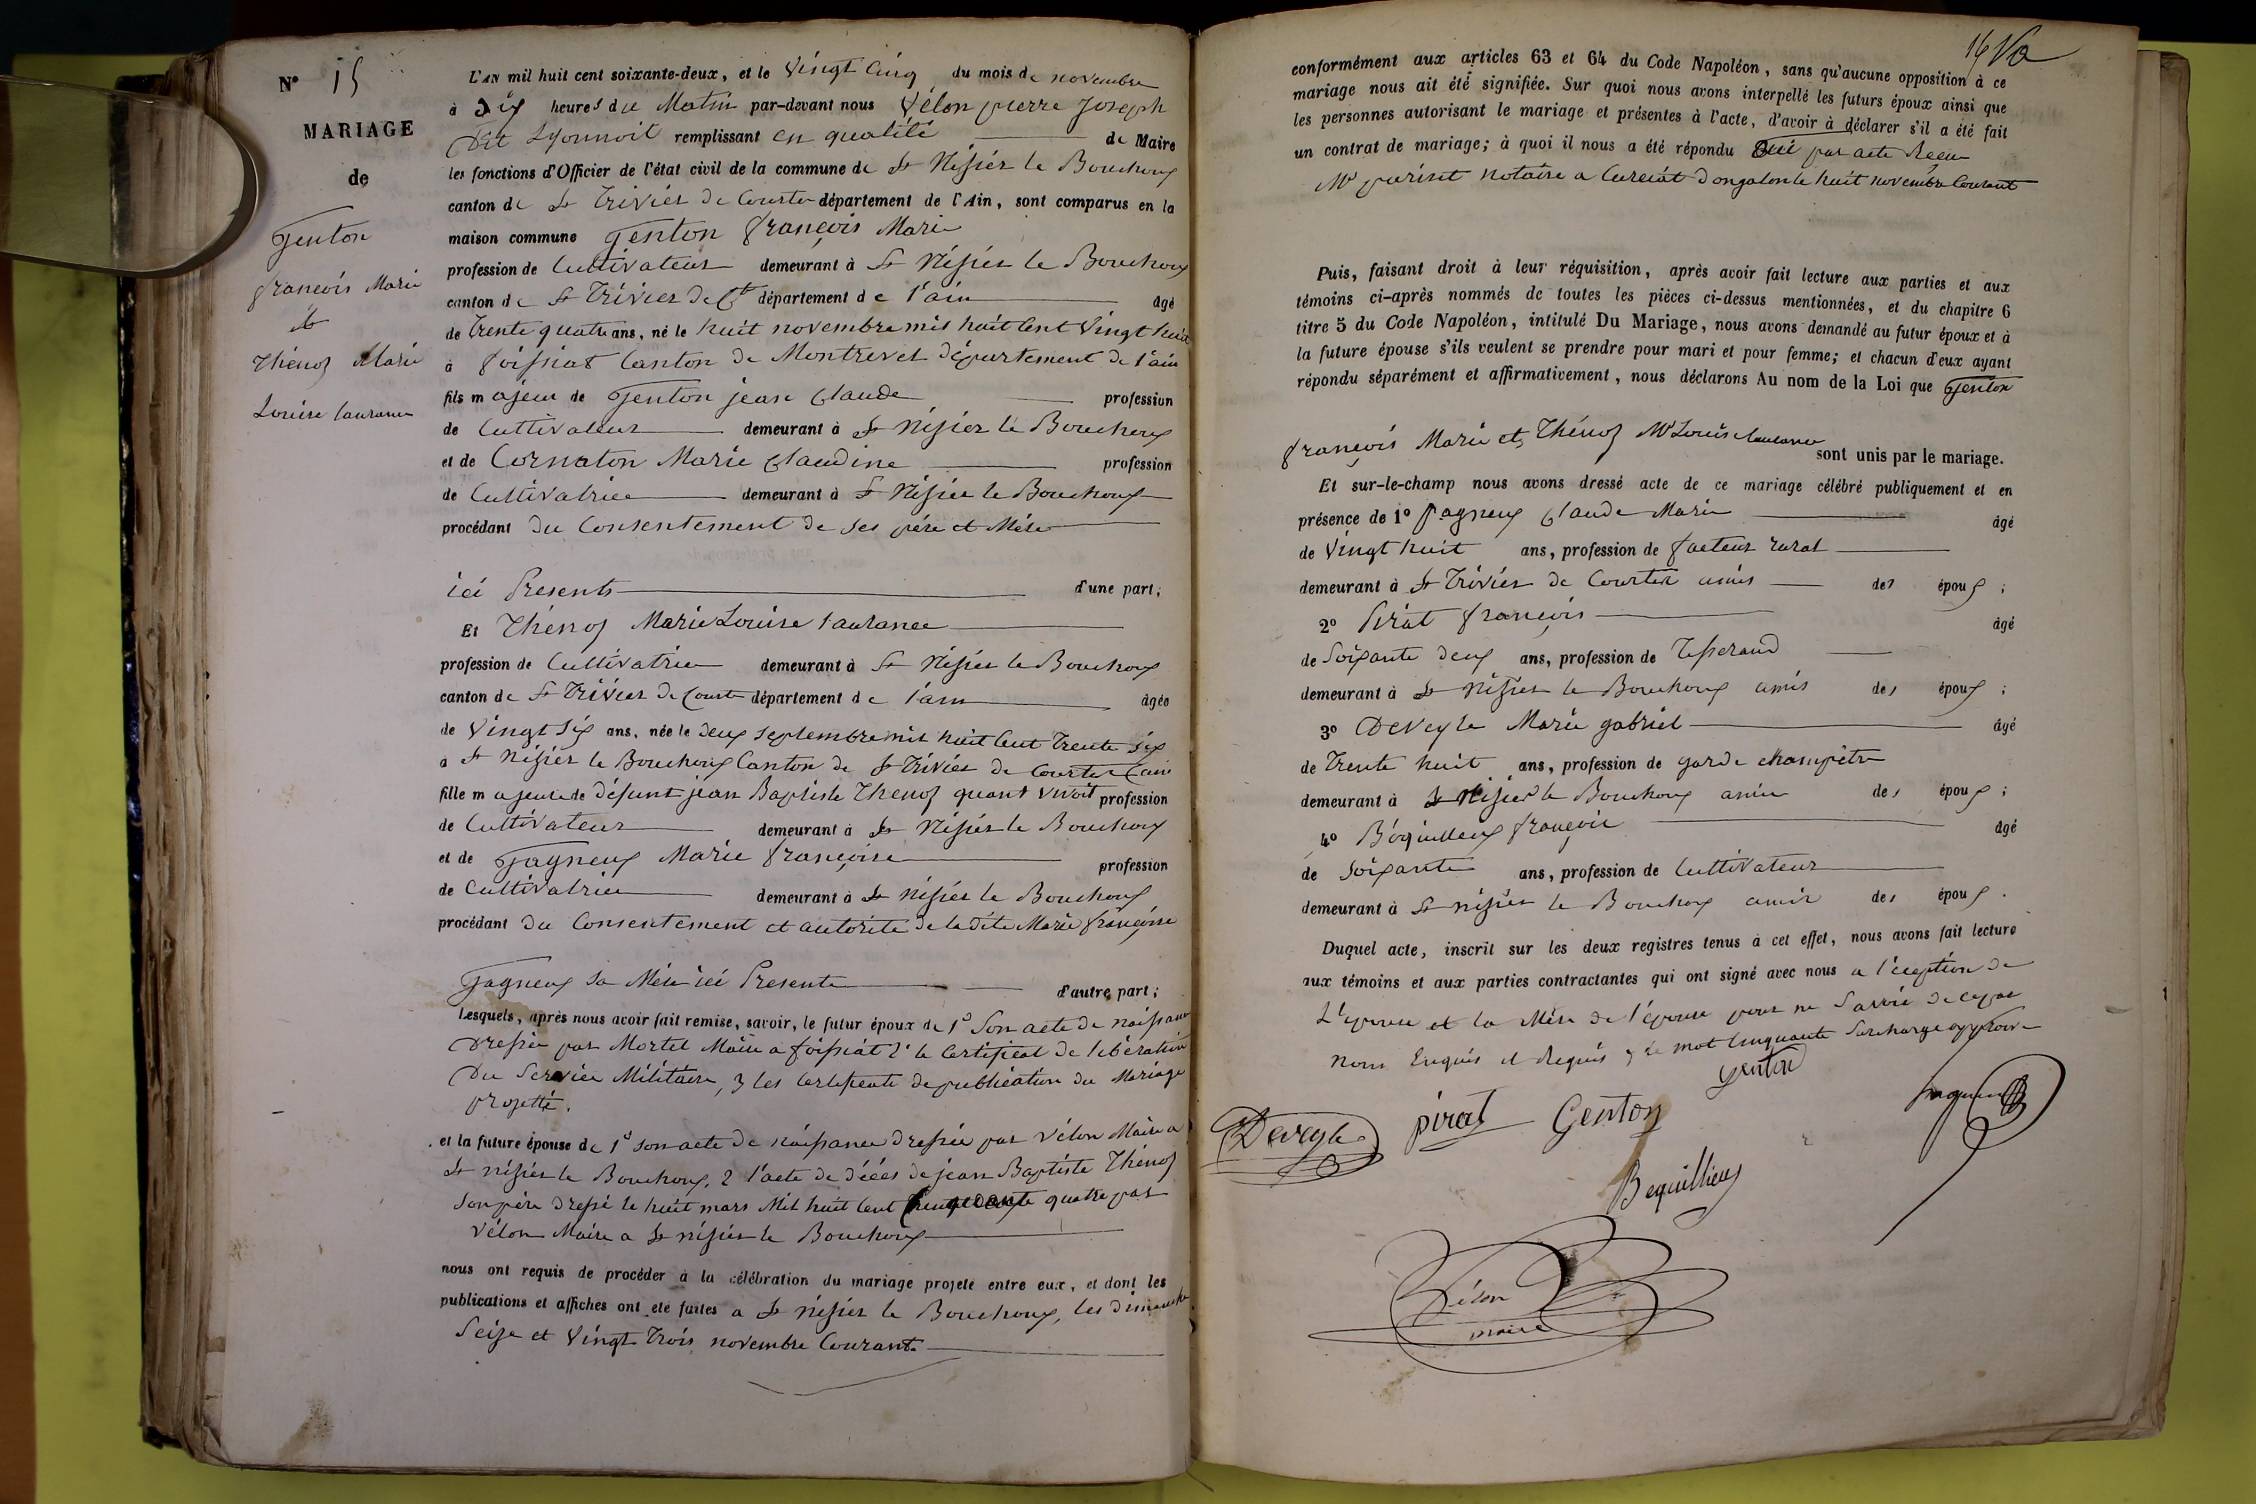 N° 15
MARIAGE
de
Genton
françois Marie
et
Thénoz Marie
Louise laurance
L'AN mil huit cent soixante-deux, et le Vingt Cinq du mois de novembre
à dix heures du Matin par-devant nous Vélon pierre Joseph
Dit Lyonnoit remplissant en qualité de Maire
les fonctions d'Officier de l'état civil de la commune de St Nisier le Bouchoux
canton de St Trivier de Courte département de l'Ain, sont comparus en la
maison commune Genton françois Marie
profession de Cultivateur demeurant à St Nisier le Bouchoux
canton de St Trivier de Ct département de l'ain âgé
de Trente quatre ans, né le huit novembre mil huit Cent Vingt huit
à foissiat Canton de Montrevel département de l'ain
fils majeur de Genton jean Claude profession
de Cultivateur demeurant à St Nisier le Bouchoux
et de Cornaton Marie Claudine profession
de Cultivatrice demeurant à St Nisier le Bouchoux
procédant du Consentement de ses père et Mère
ici Presents d'une part;
Et Thénoz Marie Louise laurance
profession de Cultivatrice demeurant à St Nisier le Bouchoux
canton de St Trivier de Courte département de l'ain âgée
de Vingt six ans, née le deux septembre mil huit Cent Trente six
à St Nisier le Bouchoux Canton de St Trivier de Courte (ain
fille majeure de défunt jean Baptiste Thenoz quant vivoit profession
de Cultivateur demeurant à St Nisier le Bouchoux
et de Gagneux Marie françoise profession
de Cultivatrice demeurant à St Nisier le Bouchoux
procédant du Consentement et autorité de la dite Marie françoise
Gagneux sa Mère ici Presente d'autre part;
Lesquels, après nous avoir fait remise, savoir, le futur époux de 1° Son acte de naissance
dressé par Mortel Maire a foissiat 2° le Certificat de libération
du Service Militaire, 3 les Certificats de publication du Mariage
projetté.
et la future épouse de 1° son acte de naissance dressée par Vélon Maire a
St nisier le Bouchoux, 2 l'acte de décés de jean Baptiste Thénoz
son père dressé le huit mars Mil huit Cent Cinquante quatre par
Vélon Maire a St nisier le Bouchoux
nous ont requis de procéder à la célébration du mariage projeté entre eux, et dont les
publications et affiches ont été faites a St nisier le Bouchoux, les dimanche
Seize et Vingt Trois novembre Courant
conformément aux articles 63 et 64 du Code Napoléon, sans qu'aucune opposition à ce
mariage nous ait été signifiée. Sur quoi nous avons interpellé les futurs époux ainsi que
les personnes autorisant le mariage et présentes à l'acte, d'avoir à déclarer s'il a été fait
un contrat de mariage; à quoi il nous a été répondu Oui par acte Recu
Me notaire a Curciat Dongalon le huit novembre Courant
Puis, faisant droit à leur réquisition, après avoir fait lecture aux parties et aux
témoins ci-après nommés de toutes les pièces ci-dessus mentionnées, et du chapitre 6
titre 5 du Code Napoléon, intitulé Du Mariage, nous avons demandé au futur époux et à
la future épouse s'ils veulent se prendre pour mari et pour femme; et chacun d'eux ayant
répondu séparément et affirmativement, nous déclarons Au nom de la Loi que Genton
françois Marie et Thénoz Me Louise laurance sont unis par le mariage.
Et sur-le-champ nous avons dressé acte de ce mariage célébré publiquement et en
présence de 1° Gagneux Claude Marie âgé
de Vingt huit ans, profession de facteur rural
demeurant à St Trivier de Courtes amis des époux;
2° Pirat françois âgé
de Soixante deux ans, profession de Tisserand
demeurant à St Nisier le Bouchoux amis des époux;
3° Deveyle Marie gabriel âgé
de Trente huit ans, profession de garde champètre
demeurant à St Nisier le Bouchoux amis des époux;
4° Béquilleux françois âgé
de Soixante ans, profession de Cultivateur
demeurant à St nisier le Bouchoux amis des époux.
Duquel acte, inscrit sur les deux registres tenus à cet effet, nous avons fait lecture
aux témoins et aux parties contractantes qui ont signé avec nous a l'éception de
L'epouse et la Mère de l'épouse pour ne Savoir de ce par
nous Enquis et Requis, le mot Cinquante Surcharge approuvé
genton
Deveyle pirat Genton
Bequillieux
Vélon
maire